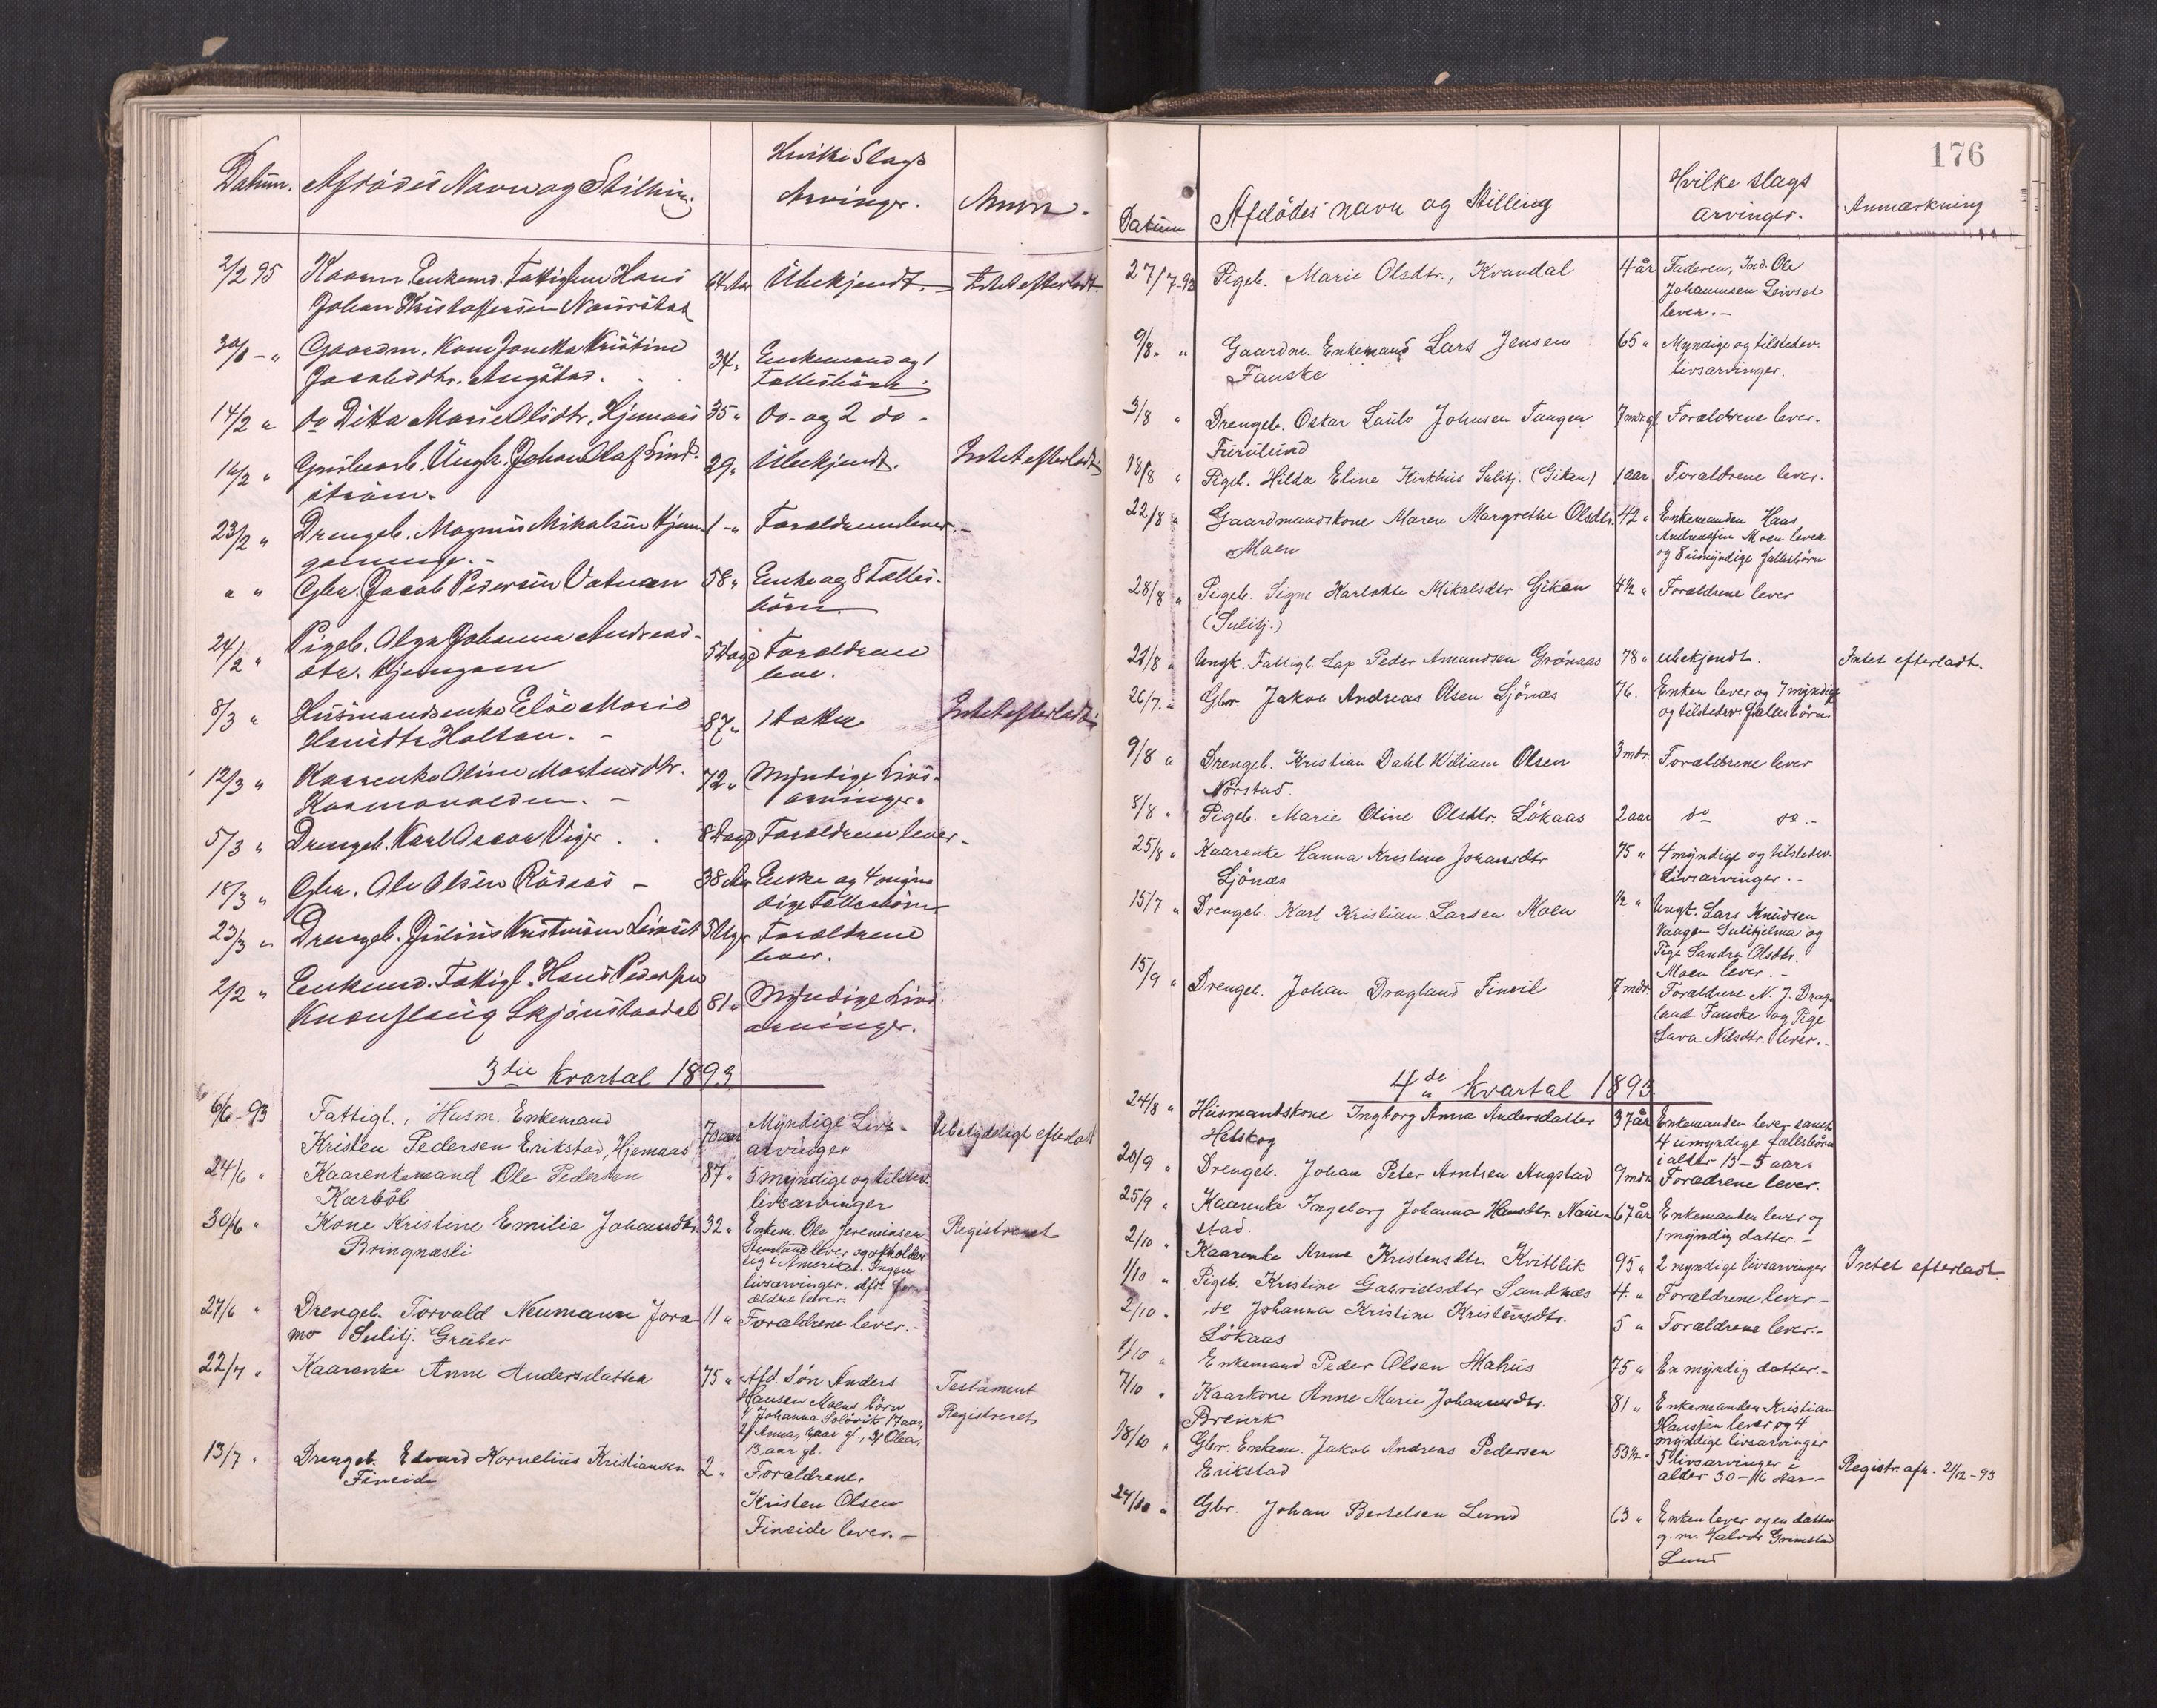 Datum. Afdödes Navn og Stilling. Hvilke Slags Arvinger. Anm.
2/2 95 Kaarm. Enkemd. Fattiglem Hans 64 Aar Ubekjendt. Intet efterladt.
Johan Kristoffersen Naurstad
30/1 - " Gaardm. Kone Jonetta Kristine 34 " Enkemand og 1
Jacobsdtr. Angstad. Fællesbarn.
14/2 " do Ditta Marie Olsdtr. Hjemaas 35 " do. og 2 do.
16/2 " Grubearb. Ungk. Johan Olaf Lind- 29 " Ubekjendt. Intet efterladt
ström.
23/2 " Drengeb. Magnus Mikalsen Hjem- 1 " Forældrene lever.
" " Gbr. Jacob Pedersen Vatnan 58 " Enke og 8 Fælles-
börn.
24/2 " Pigeb. Olga Johanna Andreas- 5 Dage Forældrene
dtr. leve.
8/3 " Husmandsenke Else Marie 87 " 1 datter Intet efterladt
Hansdtr
12/3 " Kaarenke Oline Mortensdtr. 72 " Myndige Livs-
arvinger.
5/3 " Drengeb. Karl Oscar 8 Dage Forældrene lever.
18/3 " Gbr. Ole Olsen Rödaas - 38 Aar Enke og 4 myn-
dige Fællesbörn
23/3 " Drengeb. Julius Kristensen Leivset 3 Uger Forældrene
lever.
2/2 " Enkemd. Fattigl. Hans Pedersen 81 " Myndige Livs-
Skjönstadal arvinger.
3die kvartal 1893
6/6 - 93 Fattigl., Husm. Enkemand 70 aar Myndige Livs- Ubetydeligt efterladt
Kristen Pedersen Erikstad, Hjemaas arvinger
24/6 " Kaarenkemand Ole Pedersen 87 " 5 myndige og tilstedev.
Karböl livsarvinger
30/6 " Kone Kristine Emilie Johansdtr. 32 " Enkem. Ole Jereminsen Registreret
Bringnæsli lever og opholder
sig i Amerika. Ingen
livsarvinger. Afd. for-
ældre lever.
27/6 " Drengeb. Torvald Neumann Jora- 11 " Forældrene lever.-
mo Sulitj. Gruber
22/7 " Kaarenke Anne Andersdatter 75 " Afd. Sön Anders Testament
Hansen Moens börn Registreret
1/ Johanna Solövik 17 aar,
2/ Anna, aar gl., 3/ Olea,
13 aar gl.
13/7 " Drengeb. Edvard Kornelius Kristiansen 2 " Forældrene,
Fineide Kristen Olsen
Fineide lever.-
176
Datum Afdödes navn og Stilling Hvilke slags arvinger. Anmærkning
27/7-93 Pigeb. Marie Olsdtr., Kvandal 4 år Faderen, Ind. Ole
Johannesen Leivset
lever.-
9/8 " " Gaardm. Enkemand Lars Jensen 65 " Myndige og tilstedev.
Fauske livsarvinger.
3/8 " Drengeb. Oskar Saulo Johnsen Tangen 7 mdr. gl. Forældrene lever.
Furulund
18/8 " Pigeb. Hilda Eline Kirkhus Sulitj. (Giken) 1 aar Forældrene lever.
22/8 " Gaardmandskone Maren Margrethe Olsdtr. 42 " Enkemanden Hans
Moen Andreassen Moen lever
og 8 umyndige fællesbörn
28/8 " Pigeb. Signe Karlotte Mikalsdtr Giken 4½ " Forældrene lever
(Sulitj.)
21/8 " Ungk. Fattigl. Lap Peder Amundsen Grönaas 78 " ubekjendt. Intet efterladt.
26/7 " Gbr. Jakob Andreas Olsen Sjönæs 76. Enken lever og 7 myndige
og tilstedev. fællesbörn
9/8 " Drengeb. Kristian Dahl Wiliam Olsen 3 mdr. Forældrene lever
Norstad.
8/8 " Pigeb. Marie Oline Olsdtr. Lökaas 2 aar do do.-
25/8 " Kaarenke Hanna Kristine Johansdtr 75 " 4 myndige og tilstedev.
Sjönæs Livsarvinger.-
15/7 " Drengeb. Karl Kristian Larsen Moen ½ " Ungk. Lars Knudsen
Vaagen Sulitjelma og
Pige Sandra Olsdtr.
Moen lever.-
15/9 " Drengeb. Johan Dragland Finvik 7 mdr. Forældrene N. J. Drag-
land Fauske og Pige
Lava Nilsdtr. lever.-
4de kvartal 1893
24/8 " Husmandskone Ingborg Anna Andersdatter 37 år Enkemanden lever samt
Helskog 4 umyndige fællsbörn
i alder 13-5 aar.
20/9 " Drengeb. Johan Peter Arntsen Angstad 9 mdr. Forædrene lever.
25/9 " Kaarenke Ingeborg Johanna Hansdtr. Naur- 67 år Enkemanden lever og
stad. 1 myndig datter.-
2/10 " Kaarenke Anne Kristensdtr. Kvitblik 95 " 2 myndige livsarvinger Intet efterladt.
1/10 " Pigeb. Kristine Gabrielsdtr Sandnæs 4. " Forældrene lever.-
2/10 " do Johanna Kristine Kristensdtr. 5 " Forældrene lever.-
Lökaas
1/10 " Enkemand Peder Olsen Mahus 75 " En myndig datter.-
7/10 " Kaarkone Anne Marie Johannesdtr. 81 " Enkemanden Kristian
Brevik Hansen lever og 4
myndige livsarvinger
18/10 " Gbr. Enkem. Jakob Andreas Pedersen 53½ " 5 livsarvinger i
Erikstad alder 30-16 aar- Registr. afh. 21/12-93
24/10 " Gbr. Johan Bertelsen Lund 63 " Enken lever og en datter
g. m. Halvor Grimstad
Lund